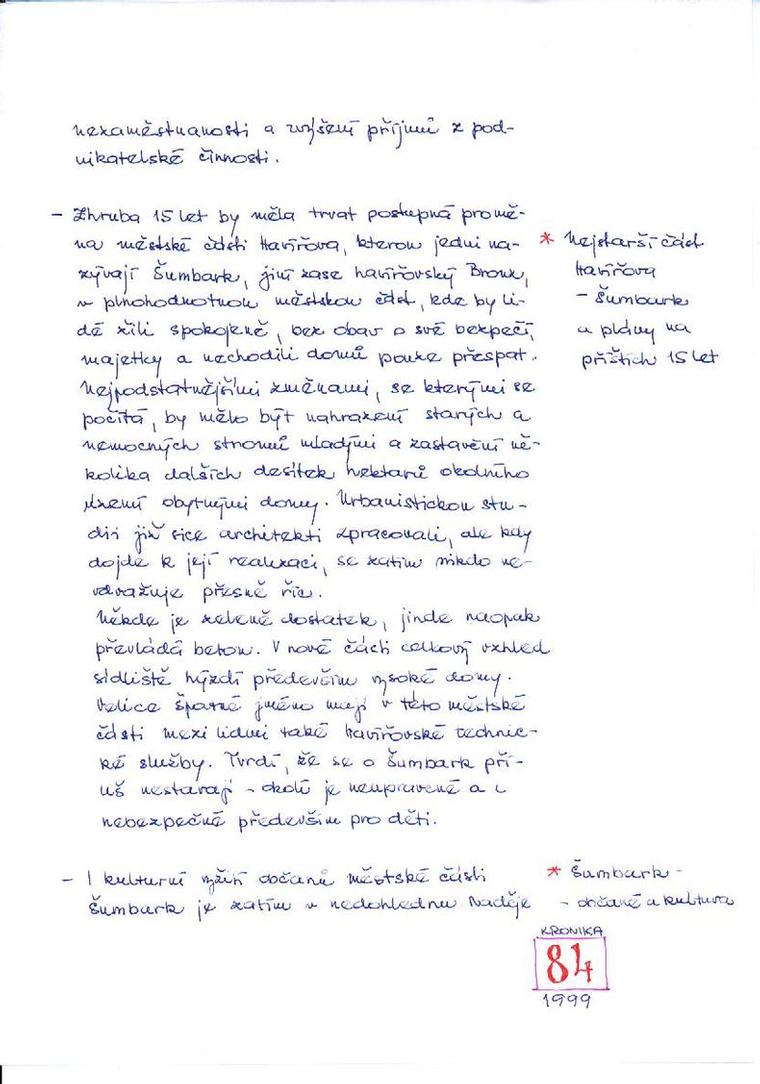 nezaměstnanosti a zvýšení příjmů z pod-
nikatelské činnosti.
- Zhruba 15 let by měla trvat postupná promě-
na městské části Havířova, kterou jedni na-
zývají Šumbark, jiní zase havířovský Bronx,
v plnohodnotnou městskou část, kde by li-
dé žili spokojeně, bez obav o své bezpečí,
majetky a nechodili domů pouze přespat.
Nejpodstatnějšími změnami, se kterými se
počítá, by mělo být nahrazení starých a
nemocných stromů mladými a zastavění ně-
kolika dalších desítek hektarů okolního
území obytnými domy. Urbanistickou stu-
dii již sice architekti zpracovali, ale kdy
dojde k její realizaci, se zatím nikdo ne-
odvažuje přesně říc.
Někde je zeleně dostatek, jinde naopak
převládá beton. V nové části celkový vzhled
sídliště hyzdí především vysoké domy.
Velice špatné jméno mají v této městské
části mezi lidmi také havířovské technic-
ké služby. Tvrdí, že se o Šumbark pří-
liš nestarají - okolí je neupravené a i
nebezpečné především pro děti.
* Nejstarší část
Havířova
- Šumbark
a plány na
příštích 15 let
- I kulturní vyžití občanů městské části
Šumbark je zatím v nedohlednu. Naděje
* Šumbark -
- občané a kultura
KRONIKA
84
1999